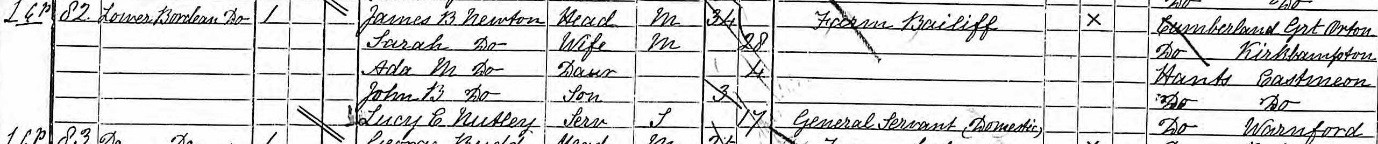 Do Do
16p 82 Lower Bordean Do 1 James B Newton Head M 34 Farm Bailiff × Cumberland Grt Orton
Sarah Do Wife M 28 Do Kirkbampton
Ada M Do Daur 4 Hants Eastmeon
John B Do Son 3 Do Do
Lucy E Nutley Serv S 17 General Servant (Domestic) Do Warnford
16p 83 Do Do 1 George Head M